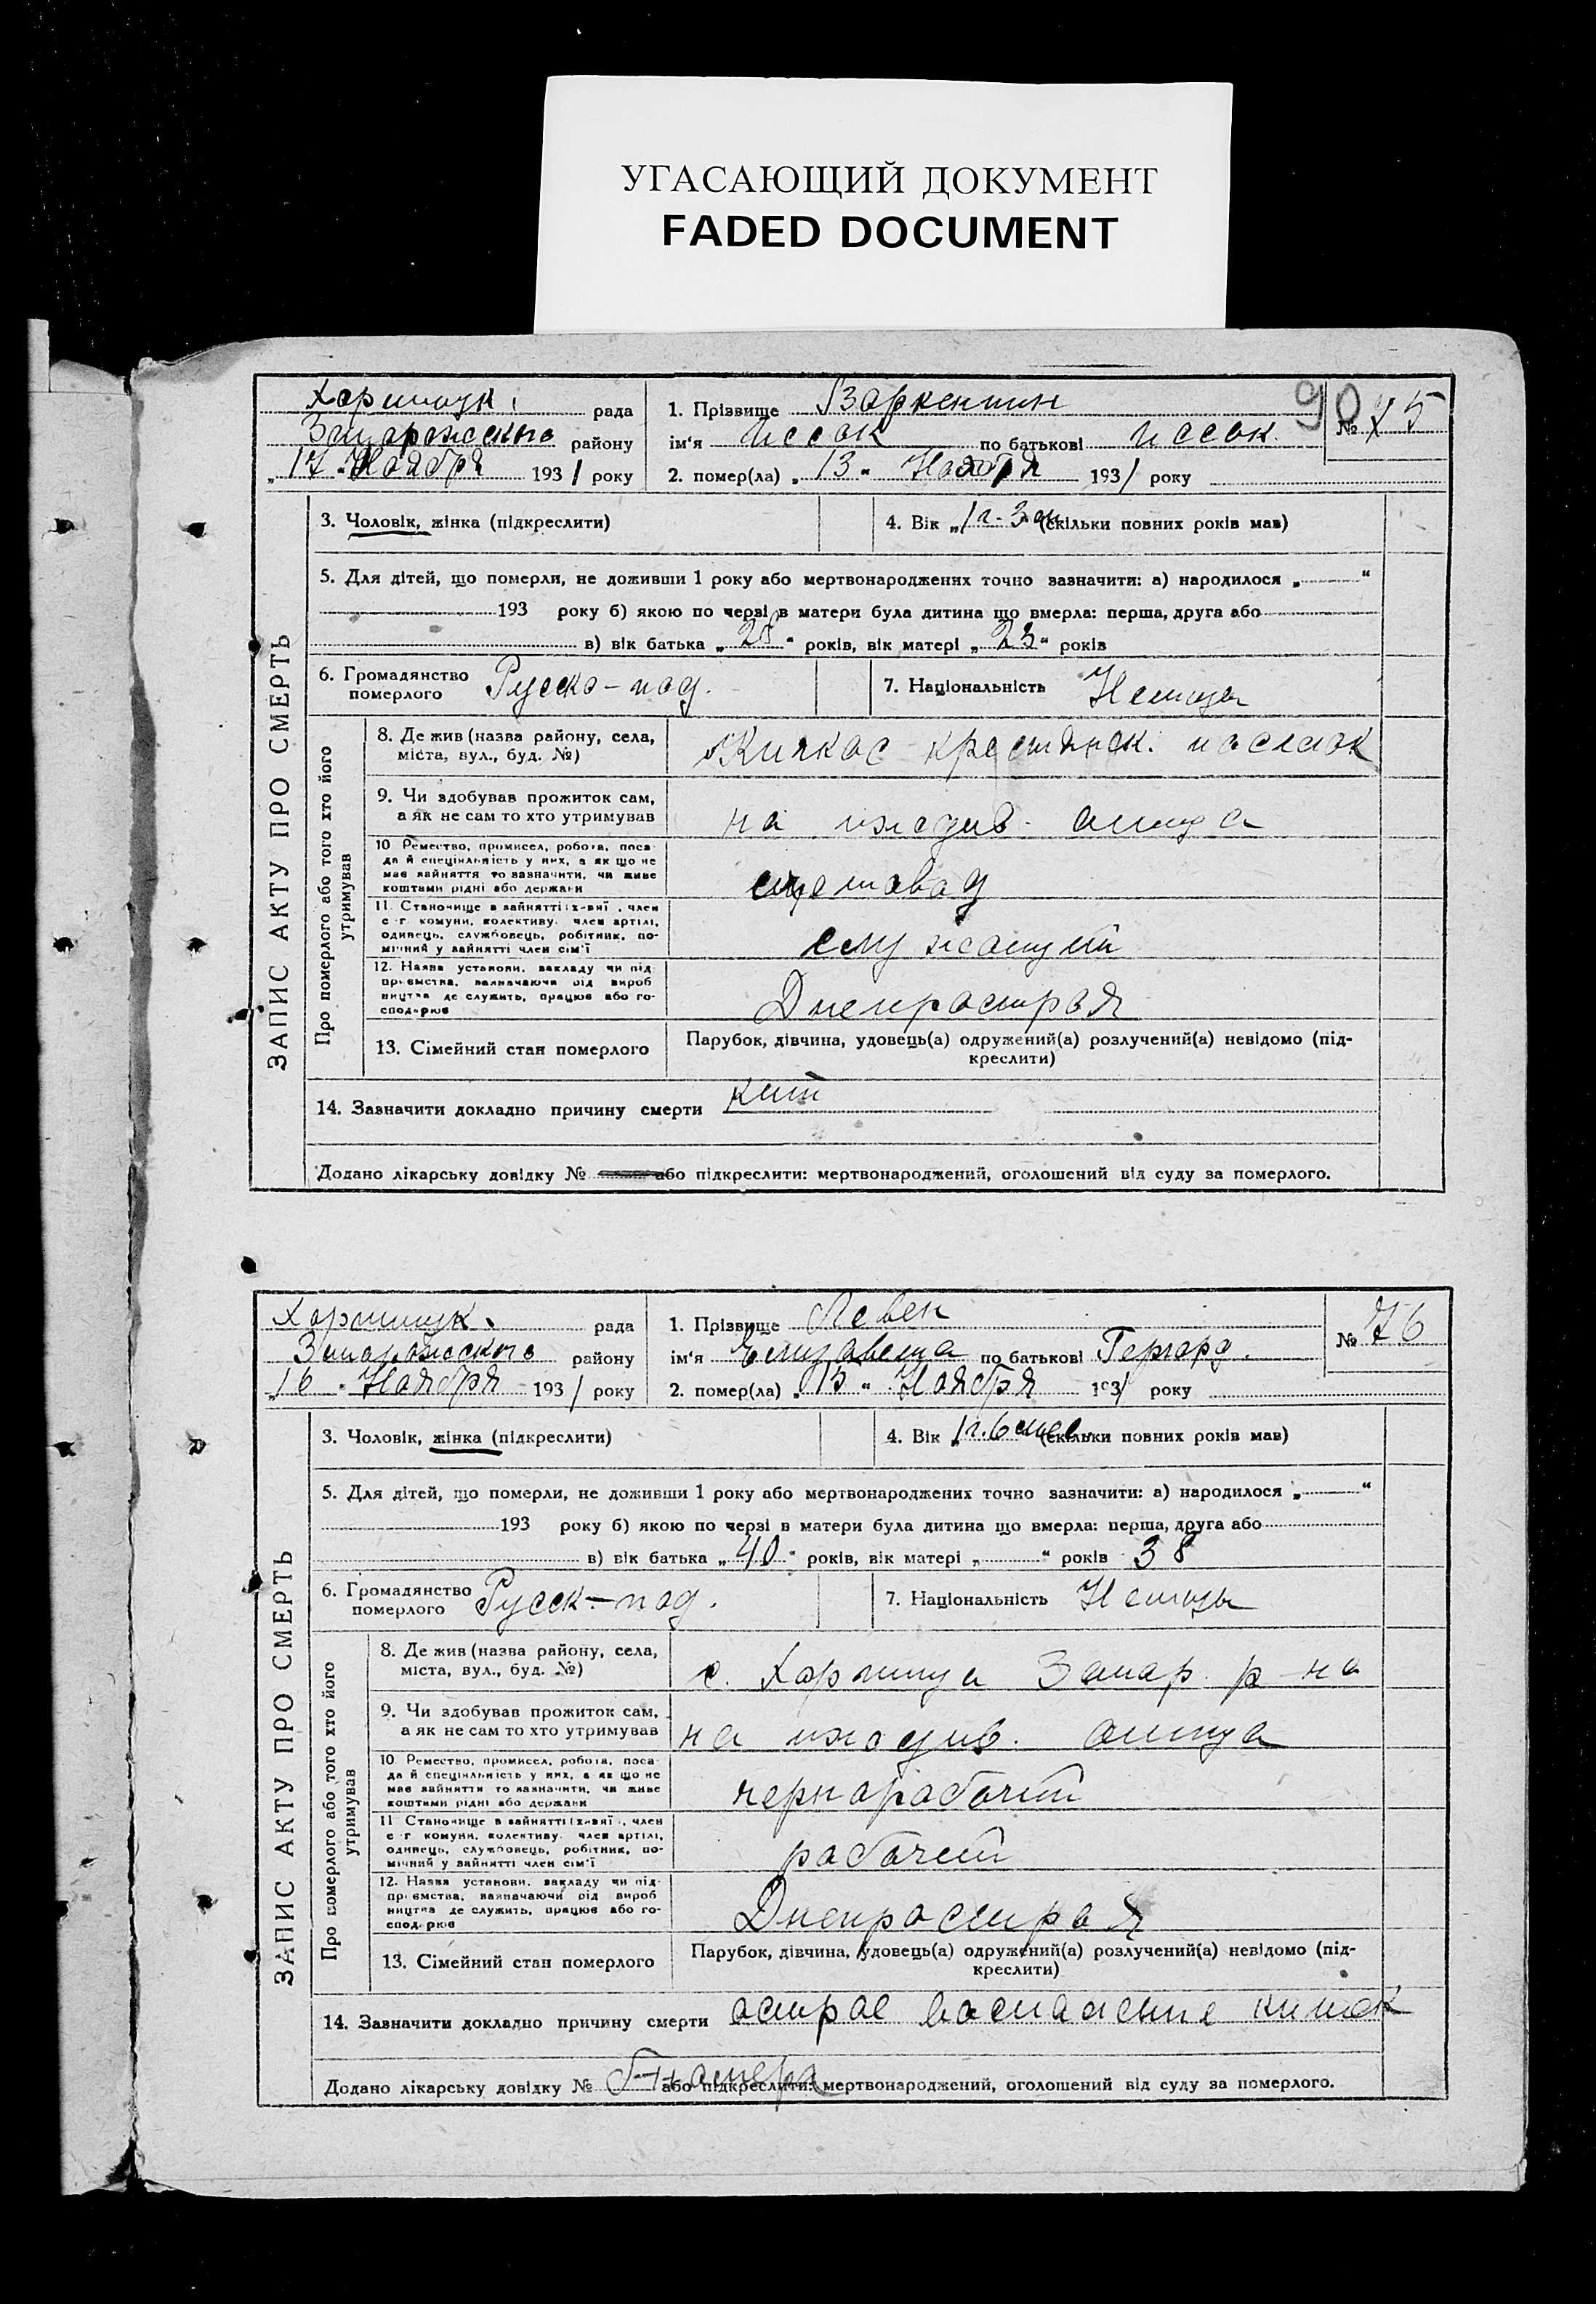 УГАСАЮЩИЙ ДОКУМЕНТ
FADED DOCUMENT
90
Хортицк. рада
Запорожского району
„17 Ноября 1931 року
1. Прізвище Варкентин
ім'я Иссак по батькові Иссак.
2. помер(ла) „13“ Ноября 1931 року
№ 75
ЗАПИС АКТУ ПРО СМЕРТЬ
3. Чоловік, жінка (підкреслити)
4. Вік „1 г. 3 м“ (скільки повних років мав)
5. Для дітей, що померли, не доживши 1 року або мертвонароджених точно зазначити: а) народилося „ “
193 року б) якою по черзі в матери була дитина що вмерла: перша, друга або
в) вік батька „28“ років, вік матері „23“ років
6. Громадянство померлого Русско-под.
7. Національність Немцы
Про померлого або того хто його утримував
8. Де жив (назва району, села,
міста, вул., буд. №)
Кичкас крестьянск. поселок
9. Чи здобував прожиток сам,
а як не сам то хто утримував
на иждив. отца
10 Ремество, промисел, робота, поса-
да й спеціяльність у них, а як що не
має зайняття то зазначити, чи живе
коштами рідні або держави
счетовод
11. Становище в зайнятті (х-вяї, член
с г. комуни, колективу, член артілі,
одинець, службовець, робітник, по-
мічний у зайнятті член сім'ї
служащий
12. Назва установи, закладу чи під-
приємства, зазначаючи рід вироб
ництва де служить, працює або го-
сподарює
Днепрострой
13. Сімейний стан померлого
Парубок, дівчина, удовець(а) одружений(а) розлучений(а) невідомо (під-
креслити)
14. Зазначити докладно причину смерти
Додано лікарську довідку № або підкреслити: мертвонароджений, оголошений від суду за померлого.
Хортицк. рада
Запорожского району
„16 Ноября 1931 року
1. Прізвище Левен
ім'я Елизавета по батькові Гергард.
2. помер(ла) „15“ Ноября 1931 року
№ 76
ЗАПИС АКТУ ПРО СМЕРТЬ
3. Чоловік, жінка (підкреслити)
4. Вік „1 г. 6 мес. (скільки повних років мав)
5. Для дітей, що померли, не доживши 1 року або мертвонароджених точно зазначити: а) народилося „ “
193 року б) якою по черзі в матери була дитина що вмерла: перша, друга або
в) вік батька „40“ років, вік матері „ “ років 38
6. Громадянство померлого Русск-под.
7. Національність Немцы
Про померлого або того хто його утримував
8. Де жив (назва району, села,
міста, вул., буд. №)
с. Хортица Запор. р-на
9. Чи здобував прожиток сам,
а як не сам то хто утримував
на иждив. отца
10 Ремество, промисел, робота, поса-
да й спеціяльність у них, а як що не
має зайняття то зазначити, чи живе
коштами рідні або держави
чернорабочий
11 Становище в зайнятті (х-вяї, член
с г. комуни, колективу, член артілі,
одинець, службовець, робітник, по-
мічний у зайнятті член сім'ї
рабочий
12. Назва установи, закладу чи під-
приємства, зазначаючи рід вироб
ництва де служить, працює або го-
сподарює
Днепрострой
13. Сімейний стан померлого
Парубок, дівчина, удовець(а) одружений(а) розлучений(а) невідомо (під-
креслити)
14. Зазначити докладно причину смерти острое воспаление кишок
Додано лікарську довідку № або підкреслити: мертвонароджений, оголошений від суду за померлого.